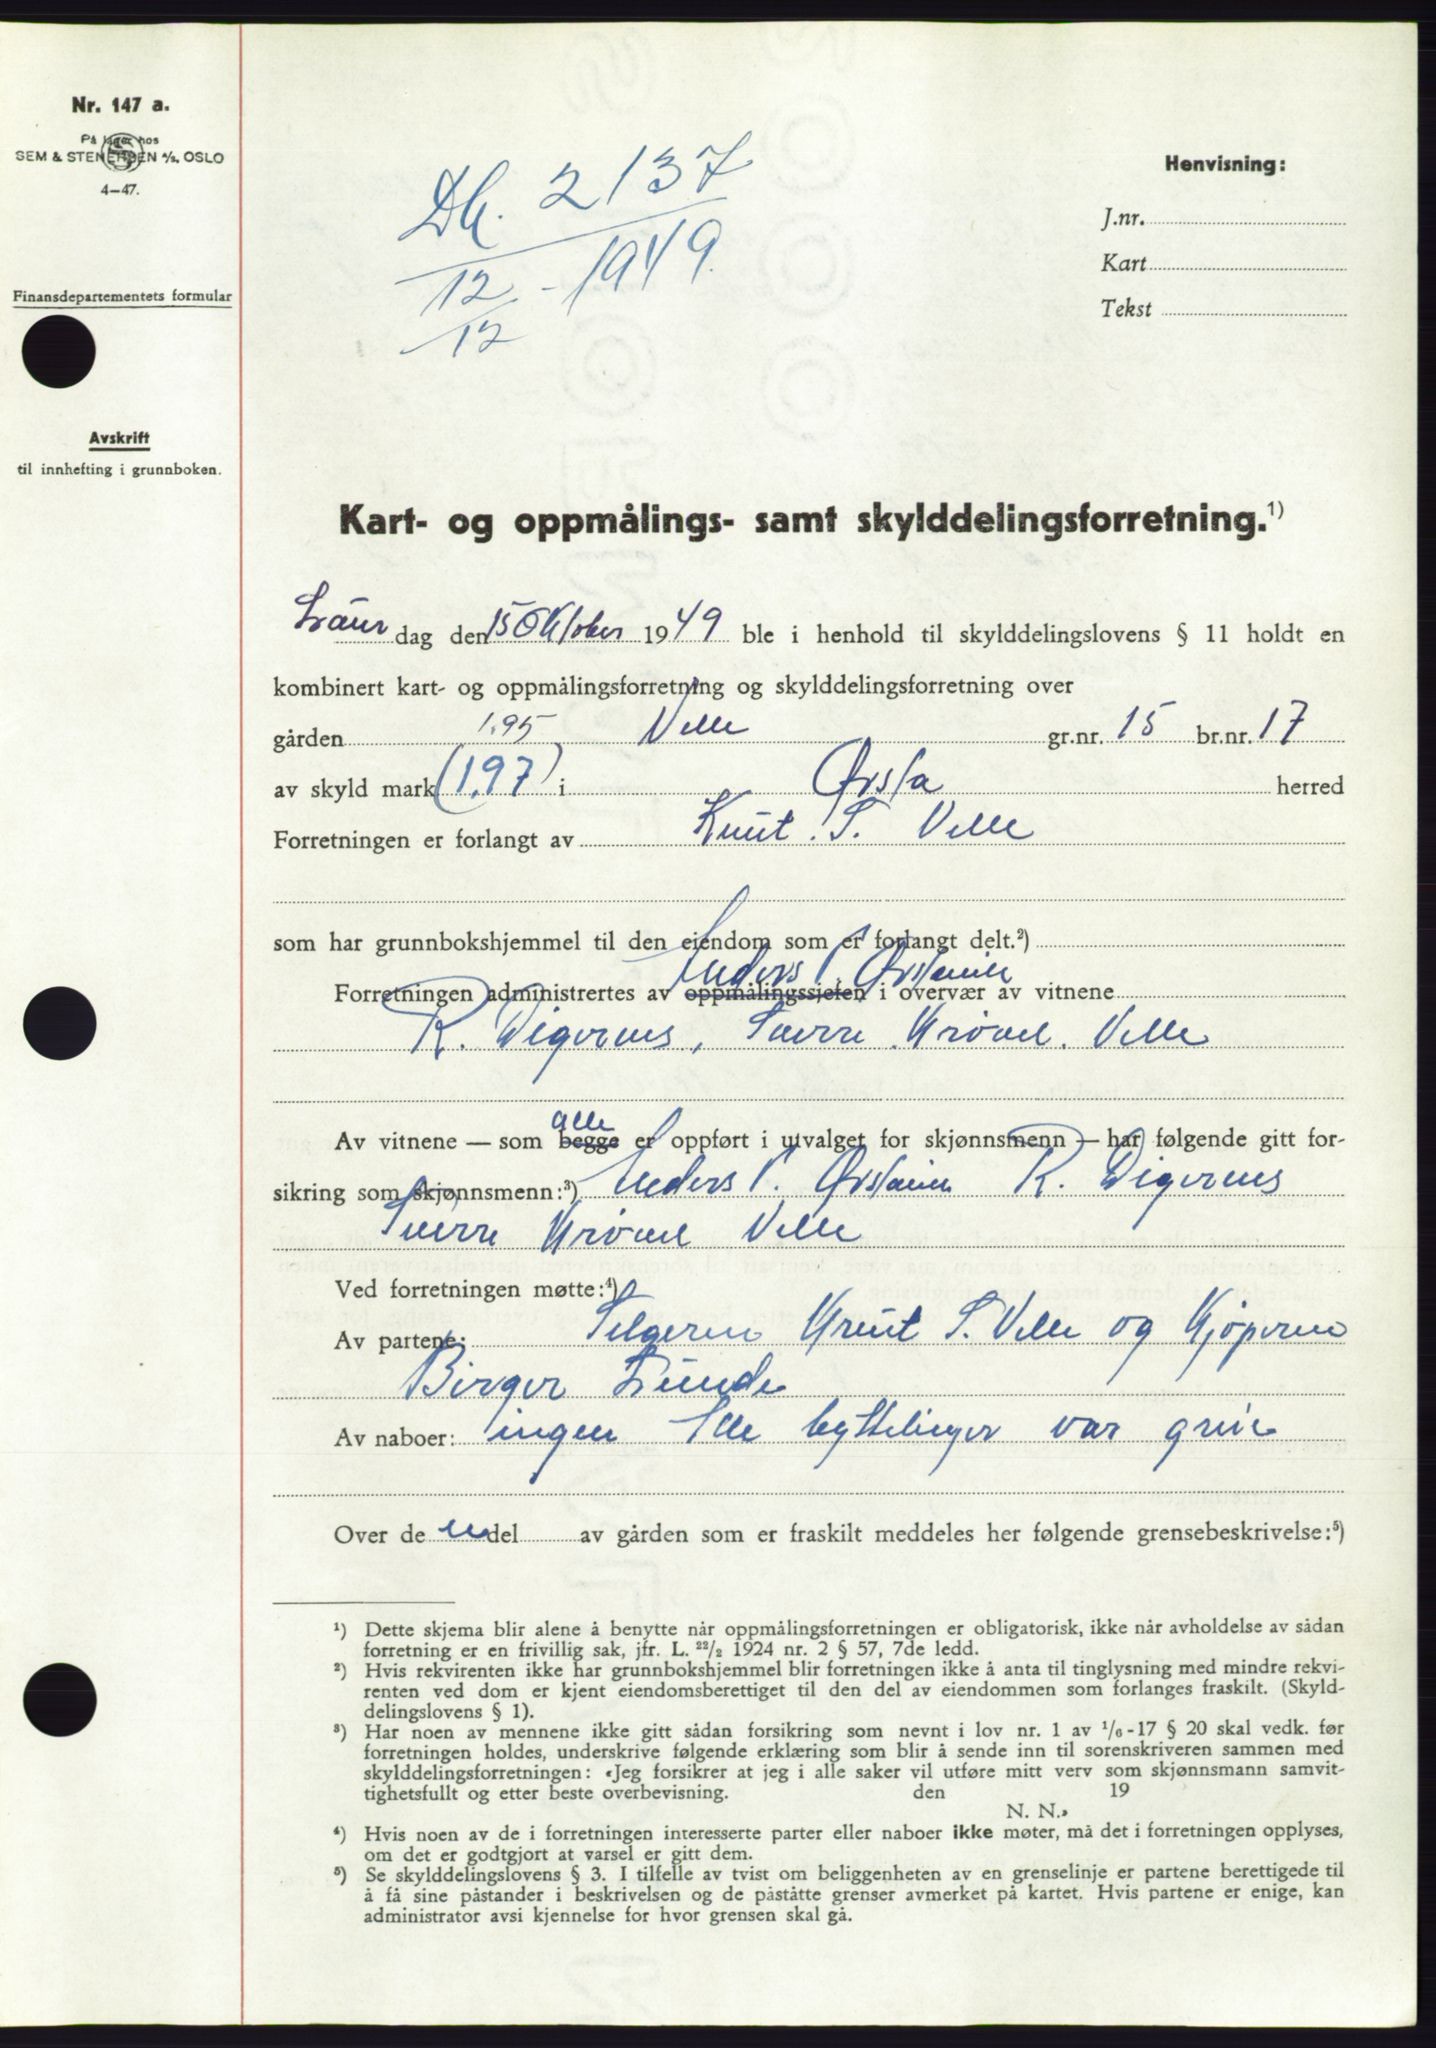 Nr. 147 a.
På lager hos
SEM & STENERSEN A/S, OSLO
4-47.
Finansdepartementets formular
Avskrift
til innhefting i grunnboken.
Db. 2137
12/12 - 1949.
Henvisning:
J.nr.
Kart
Tekst
Kart- og oppmålings- samt skylddelingsforretning.¹)
Laur dag den 15 Oktober 1949 ble i henhold til skylddelingslovens § 11 holdt en
kombinert kart- og oppmålingsforretning og skylddelingsforretning over
gården 1.95 Velle gr.nr. 15 br.nr. 17
av skyld mark (1.97) i Ørsta herred
Forretningen er forlangt av Knut S. Velle
som har grunnbokshjemmel til den eiendom som er forlangt delt.²)
Anders P. Ørstavik
Forretningen administrertes av oppmålingssjefen i overvær av vitnene
R. Digernes, Sverre Krøvel. Velle
alle
Av vitnene — som begge er oppført i utvalget for skjønnsmenn — har følgende gitt for-
sikring som skjønnsmenn:³) Anders P. Ørstavik R. Digernes
Sverre Krøvel Velle
Ved forretningen møtte:⁴)
Av partene: Selgeren Knut S. Velle og Kjøperen
Birger Lunde
Av naboer: ingen Alle byttelinger var greie
Over de en del av gården som er fraskilt meddeles her følgende grensebeskrivelse:⁵)
¹) Dette skjema blir alene å benytte når oppmålingsforretningen er obligatorisk, ikke når avholdelse av sådan
forretning er en frivillig sak, jfr. L. ²²/₂ 1924 nr. 2 § 57, 7de ledd.
²) Hvis rekvirenten ikke har grunnbokshjemmel blir forretningen ikke å anta til tinglysning med mindre rekvi-
renten ved dom er kjent eiendomsberettiget til den del av eiendommen som forlanges fraskilt. (Skyld-
delingslovens § 1).
³) Har noen av mennene ikke gitt sådan forsikring som nevnt i lov nr. 1 av ¹/₆-17 § 20 skal vedk. før
forretningen holdes, underskrive følgende erklæring som blir å sende inn til sorenskriveren sammen med
skylddelingsforretningen: «Jeg forsikrer at jeg i alle saker vil utføre mitt verv som skjønnsmann samvit-
tighetsfullt og etter beste overbevisning. den 19
N. N.»
⁴) Hvis noen av de i forretningen interesserte parter eller naboer ikke møter, må det i forretningen opplyses,
om det er godtgjort at varsel er gitt dem.
⁵) Se skylddelingslovens § 3. I tilfelle av tvist om beliggenheten av en grenselinje er partene berettigede til
å få sine påstander i beskrivelsen og de påståtte grenser avmerket på kartet. Hvis partene er enige, kan
administrator avsi kjennelse for hvor grensen skal gå.